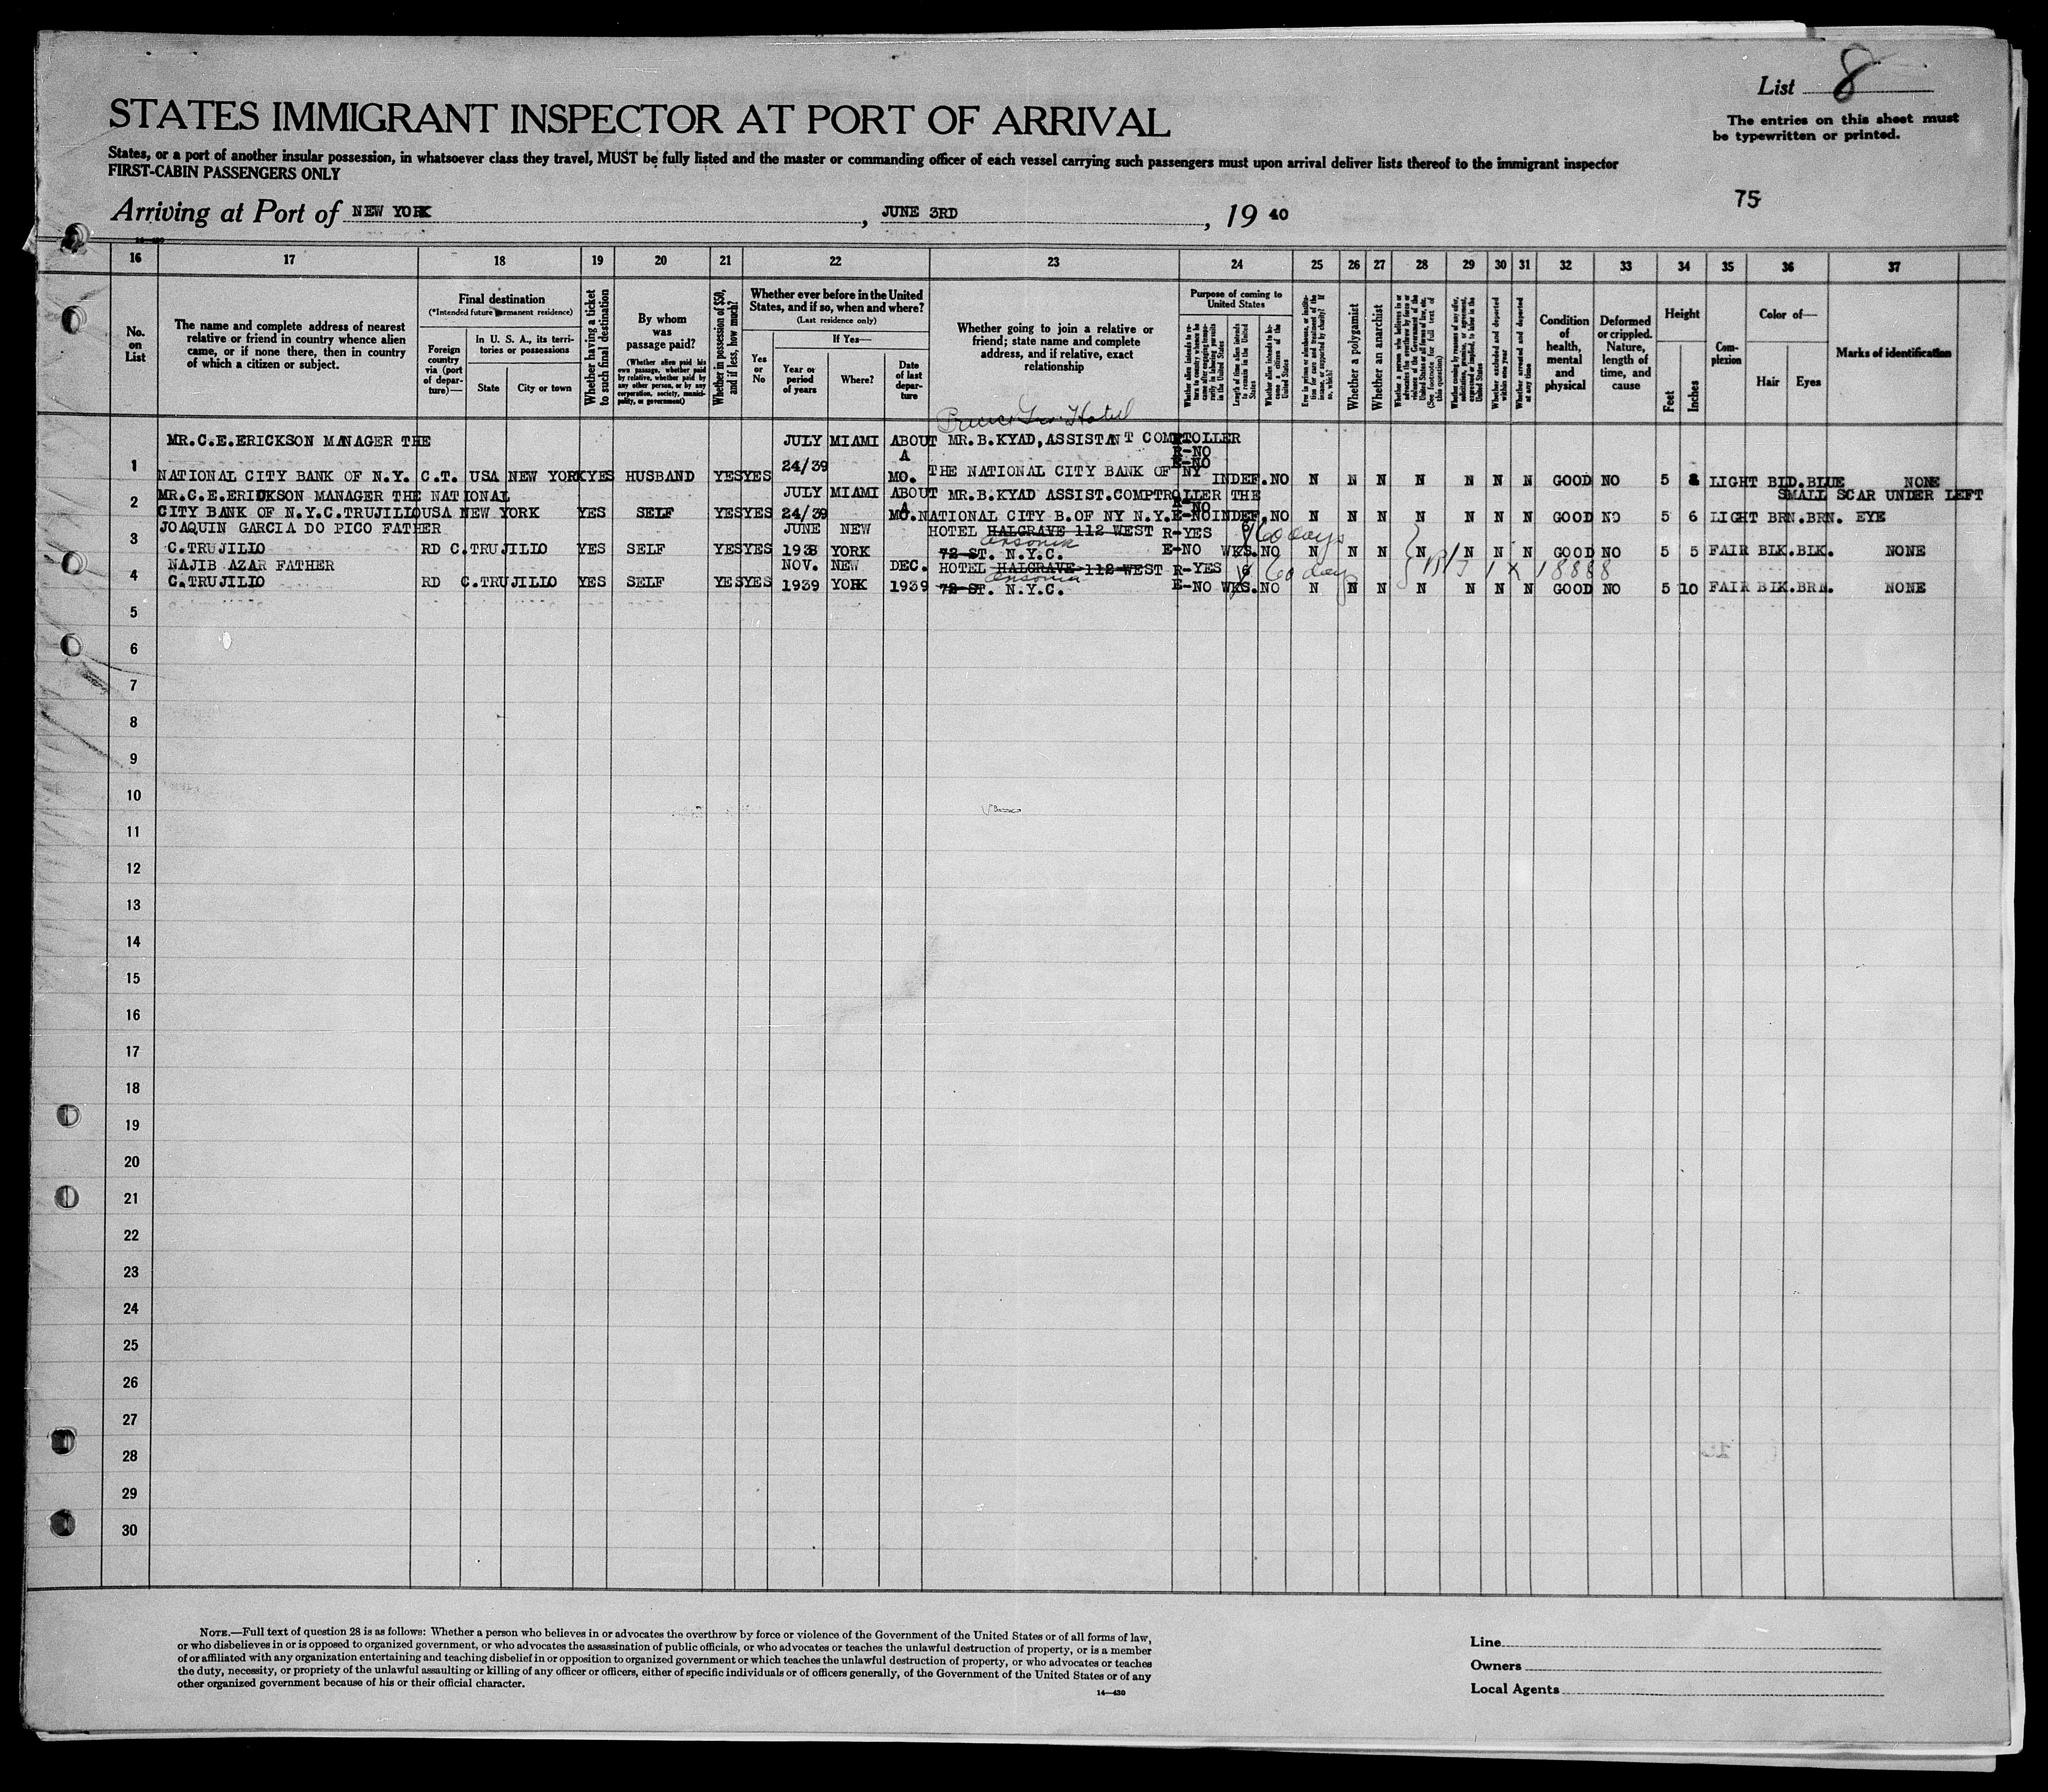 List 8
The entries on this sheet must
be typewritten or printed.
STATES IMMIGRANT INSPECTOR AT PORT OF ARRIVAL
States, or a port of another insular possession, in whatsoever class they travel, MUST be fully listed and the master or commanding officer of each vessel carrying such passengers must upon arrival deliver lists thereof to the immigrant inspector
FIRST-CABIN PASSENGERS ONLY
75
Arriving at Port of NEW YORK, JUNE 3RD, 19 40
16 17 18 19 20 21 22 23 24 25 26 27 28 29 30 31 32 33 34 35 36 37
No. on List
The name and complete address of nearest
relative or friend in country whence alien
came, or if none there, then in country
of which a citizen or subject.
Final destination
(*Intended future permanent residence)
Foreign country via (port of departure)—
In U. S. A., its territories or possessions
State
City or town
Whether having a ticket to such final destination
By whom was passage paid?
(Whether alien paid his own passage, whether paid by relative, whether paid by any other person, or by any corporation, society, municipality, or government)
Whether in possession of $50, and if less, how much?
Whether ever before in the United States, and if so, when and where?
(Last residence only)
Yes or No
If Yes—
Year or period of years
Where?
Date of last departure
Whether going to join a relative or
friend; state name and complete
address, and if relative, exact
relationship
Purpose of coming to United States
Whether alien intends to return to country whence he came after engaging temporarily in laboring pursuits in the United States
Length of time alien intends to remain in the United States
Whether alien intends to become a citizen of the United States
Ever in prison or almshouse, or institution for care and treatment of the insane, or supported by charity? If so, which?
Whether a polygamist
Whether an anarchist
Whether a person who believes in or advocates the overthrow by force or violence of the Government of the United States or all forms of law, etc. (See footnote for full text of this question)
Whether coming by reason of any offer, solicitation, promise, or agreement, expressed or implied, to labor in the United States
Whether excluded and deported within one year
Whether arrested and deported at any time
Condition of health, mental and physical
Deformed or crippled. Nature, length of time, and cause
Height
Feet
Inches
Complexion
Color of—
Hair
Eyes
Marks of identification
Hotel
MR.C.E.ERICKSON MANAGER THE JULY MIAMI ABOUT MR.B.KYAD, ASSISTANT COMPTOLLER
A R-NO
1 24/39 E-NO
NATIONAL CITY BANK OF N.Y. C.T. USA NEW YORK YES HUSBAND YES YES MO. THE NATIONAL CITY BANK OF NY INDEF. NO N N N N N N N GOOD NO 5 LIGHT BLD. BLUE NONE
2 MR.C.E.ERICKSON MANAGER THE NATIONAL JULY MIAMI ABOUT MR.B.KYAD ASSIST.COMPTROLLER THE SMALL SCAR UNDER LEFT
A R-NO
CITY BANK OF N.Y.C.TRUJILIO USA NEW YORK YES SELF YES YES 24/39 MO. NATIONAL CITY B.OF NY N.Y. E-NO INDEF. NO N N N N N N N GOOD NO 5 6 LIGHT BRN. BRN. EYE
3 JOAQUIN GARCIA DO PICO FATHER JUNE NEW HOTEL HALGRAVE 112 WEST R-YES 6 60 days
Ansonia
C.TRUJILIO RD C.TRUJILIO YES SELF YES YES 1938 YORK 72 ST. N.Y.C. E-NO WKS. NO N N N N N N N GOOD NO 5 5 FAIR BLK. BLK. NONE
4 NAJIB AZAR FATHER NOV. NEW DEC. HOTEL HALGRAVE 112 WEST R-YES 6 60 days
Ansonia
C.TRUJILIO RD C.TRUJILIO YES SELF YES YES 1939 YORK 1939 72 ST. N.Y.C. E-NO WKS. NO N N N N N N N GOOD NO 5 10 FAIR BLK. BRN. NONE
5
6
7
8
9
10
11
12
13
14
15
16
17
18
19
20
21
22
23
24
25
26
27
28
29
30
NOTE.—Full text of question 28 is as follows: Whether a person who believes in or advocates the overthrow by force or violence of the Government of the United States or of all forms of law,
or who disbelieves in or is opposed to organized government, or who advocates the assassination of public officials, or who advocates or teaches the unlawful destruction of property, or is a member
of or affiliated with any organization entertaining and teaching disbelief in or opposition to organized government or which teaches the unlawful destruction of property, or who advocates or teaches
the duty, necessity, or propriety of the unlawful assaulting or killing of any officer or officers, either of specific individuals or of officers generally, of the Government of the United States or of any
other organized government because of his or their official character.
14—430
Line
Owners
Local Agents